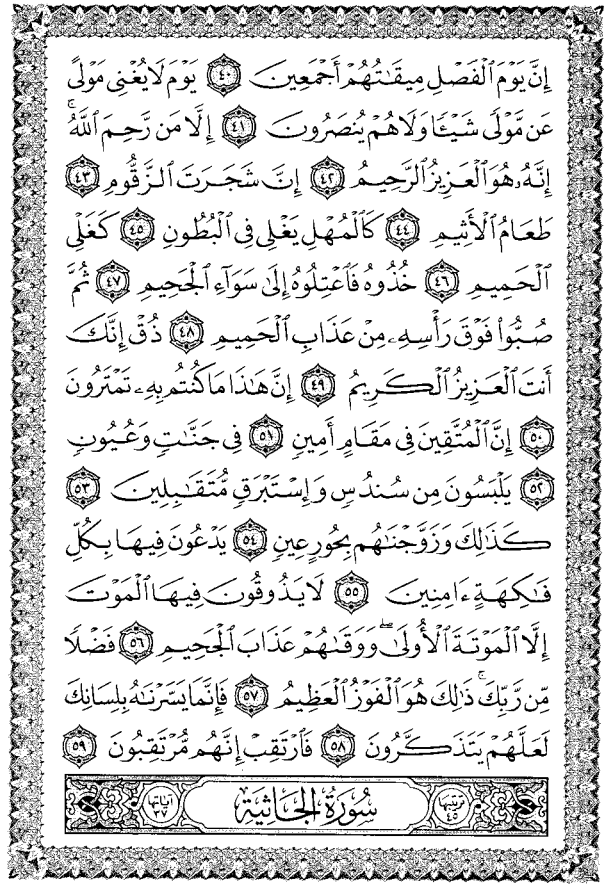 إِنَّ يَوْمَ ٱلْفَصْلِ مِيقَـٰتُهُمْ أَجْمَعِينَ ٤٠ يَوْمَ لَا يُغْنِى مَوْلًى
عَن مَّوْلًى شَيْـًٔا وَلَا هُمْ يُنصَرُونَ ٤١ إِلَّا مَن رَّحِمَ ٱللَّهُ ۚ
إِنَّهُۥ هُوَ ٱلْعَزِيزُ ٱلرَّحِيمُ ٤٢ إِنَّ شَجَرَتَ ٱلزَّقُّومِ ٤٣
طَعَامُ ٱلْأَثِيمِ ٤٤ كَٱلْمُهْلِ يَغْلِى فِى ٱلْبُطُونِ ٤٥ كَغَلْىِ
ٱلْحَمِيمِ ٤٦ خُذُوهُ فَٱعْتِلُوهُ إِلَىٰ سَوَآءِ ٱلْجَحِيمِ ٤٧ ثُمَّ
صُبُّوا۟ فَوْقَ رَأْسِهِۦ مِنْ عَذَابِ ٱلْحَمِيمِ ٤٨ ذُقْ إِنَّكَ
أَنتَ ٱلْعَزِيزُ ٱلْكَرِيمُ ٤٩ إِنَّ هَـٰذَا مَا كُنتُم بِهِۦ تَمْتَرُونَ
٥٠ إِنَّ ٱلْمُتَّقِينَ فِى مَقَامٍ أَمِينٍ ٥١ فِى جَنَّـٰتٍ وَعُيُونٍ
٥٢ يَلْبَسُونَ مِن سُندُسٍ وَإِسْتَبْرَقٍ مُّتَقَـٰبِلِينَ ٥٣
كَذَٰلِكَ وَزَوَّجْنَـٰهُم بِحُورٍ عِينٍ ٥٤ يَدْعُونَ فِيهَا بِكُلِّ
فَـٰكِهَةٍ ءَامِنِينَ ٥٥ لَا يَذُوقُونَ فِيهَا ٱلْمَوْتَ
إِلَّا ٱلْمَوْتَةَ ٱلْأُولَىٰ ۖ وَوَقَىٰهُمْ عَذَابَ ٱلْجَحِيمِ ٥٦ فَضْلًا
مِّن رَّبِّكَ ۚ ذَٰلِكَ هُوَ ٱلْفَوْزُ ٱلْعَظِيمُ ٥٧ فَإِنَّمَا يَسَّرْنَـٰهُ بِلِسَانِكَ
لَعَلَّهُمْ يَتَذَكَّرُونَ ٥٨ فَٱرْتَقِبْ إِنَّهُم مُّرْتَقِبُونَ ٥٩
ترتيبها ٤٥ سُورَةُ الجَاثِيَةِ آياتها ٣٧